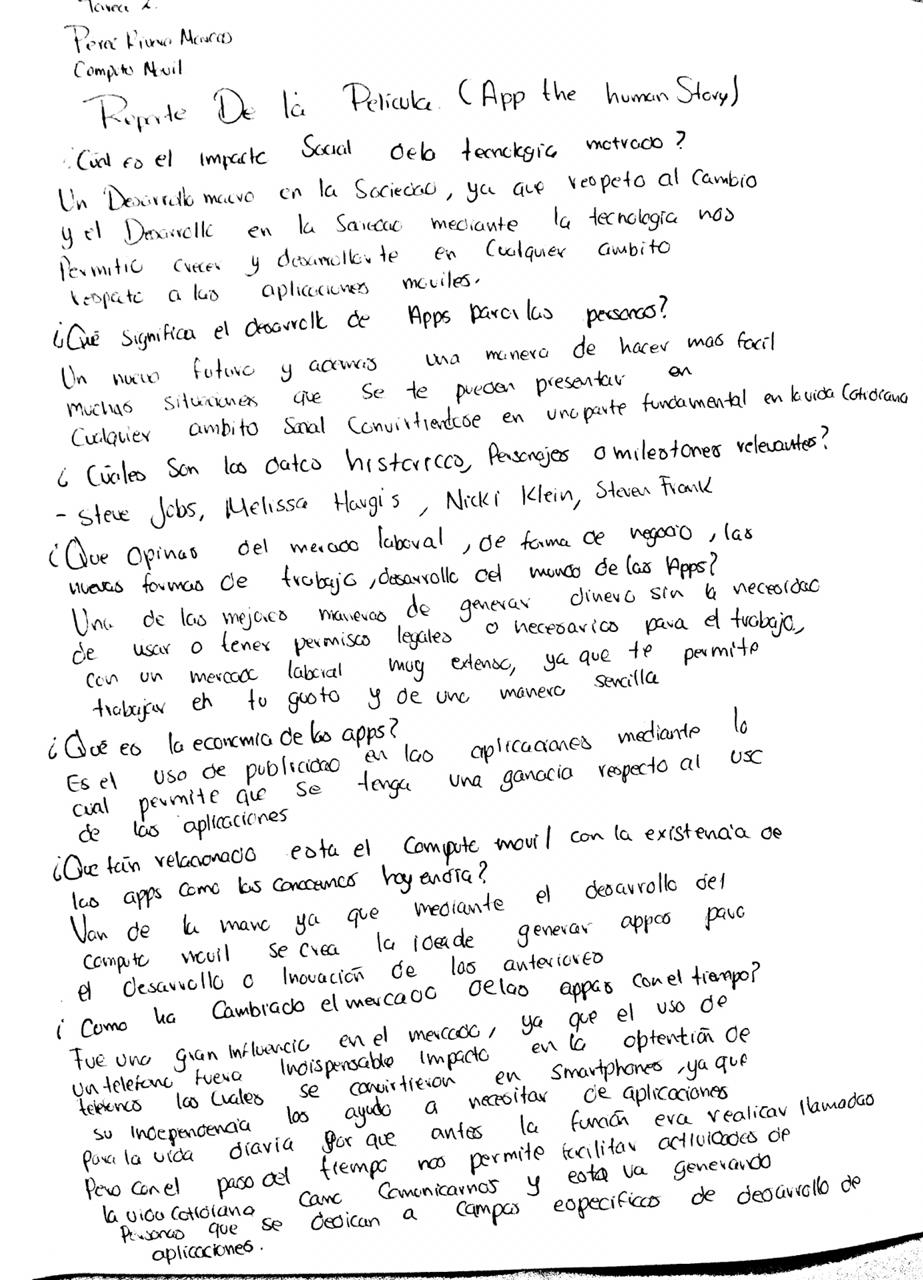 Tarea 2.
Marcos
Computo Movil
Reporte De la Pelicula (App the human Story)
¿Cual es el impacto Social dela tecnologia motrado?
Un Desarrollo nuevo en la Sociedad, ya que respeto al Cambio
y el Desarrollo en la Sociedad mediante la tecnologia nos
Permitio crecer y desarrollarte en Cualquier ambito
respeto a las aplicaciones moviles.
¿Qué significa el desarrollo de Apps para las personas?
Un nuevo futuro y además una manera de hacer mas facil
muchas situaciones que se te pueden presentar en
Cualquier ambito Social Convirtiendose en una parte fundamental en la vida Cotidiana
¿Cuáles Son los datos historicos, Personajes o milestones relevantes?
- Steve Jobs, Melissa Hargis, Nicki Klein, Steven Frank
¿Que Opinas del mercado laboral, de forma de negocio, las
nuevas formas de trabajo, desarrollo del mundo de las Apps?
Una de las mejores maneras de generar dinero sin la necesidad
de usar o tener permisos legales o necesarios para el trabajo,
con un mercado laboral muy extenso, ya que te permite
trabajar en tu gusto y de una manera sencilla
¿Qué es la economia de las apps?
Es el uso de publicidad en las aplicaciones mediante lo
cual permite que se tenga una ganacia respecto al uso
de las aplicaciones
¿Que tan relacionado esta el Computo movil con la existencia de
las apps como las conocemos hoy endia?
Van de la mano ya que mediante el desarrollo del
computo movil se crea la idea de generar appas para
el desarrollo o Inovación de las anteriores
¿Como ha Cambiado el mercado delas appas con el tiempo?
Fue una gran influencia en el mercado, ya que el uso de
un telefono fuera Indispensable Impacto en la obtentión de
telefonos los Cuales se convirtieron en Smartphones, ya que
su Independencia los ayudo a necesitar de aplicaciones
para la vida diaria por que antes la función era realizar llamadas
Pero con el paso del tiempo nos permite facilitar actividades de
la vida Cotidiana como Comunicarnos y esta va generando
Personas que se dedican a campos especificos de desarrollo de
aplicaciones.